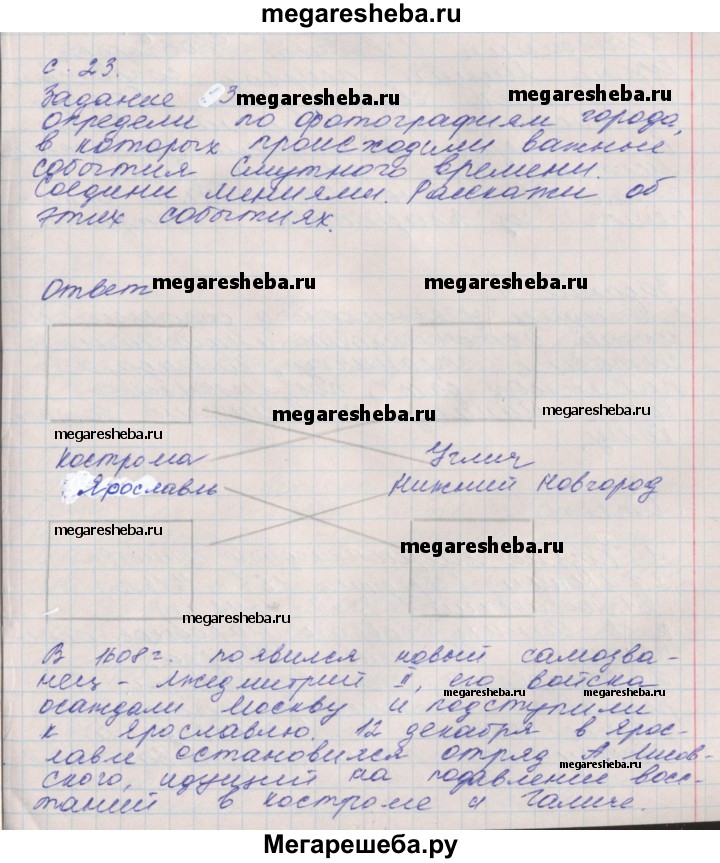 megaresheba.ru
с. 23.
Задание 3 megaresheba.ru megaresheba.ru
Определи по фотографиям города,
в которых происходили важные
события Смутного времени.
Соедини линиями. Расскажи об
этих событиях.
Ответ megaresheba.ru megaresheba.ru
megaresheba.ru
megaresheba.ru
megaresheba.ru
Кострома Углич
Ярославль Нижний Новгород
megaresheba.ru
megaresheba.ru
megaresheba.ru
В 1608 г. появился новый самозва-
нец - Лжедмитрий II, его войска
megaresheba.ru megaresheba.ru
осаждали Москву и подступили
к Ярославлю. 12 декабря в Ярос-
лавле остановился отряд А. Лисов-
megaresheba.ru
ского, идущий на подавление восс-
таний в Костроме и Галиче.
Мегарешеба.ру